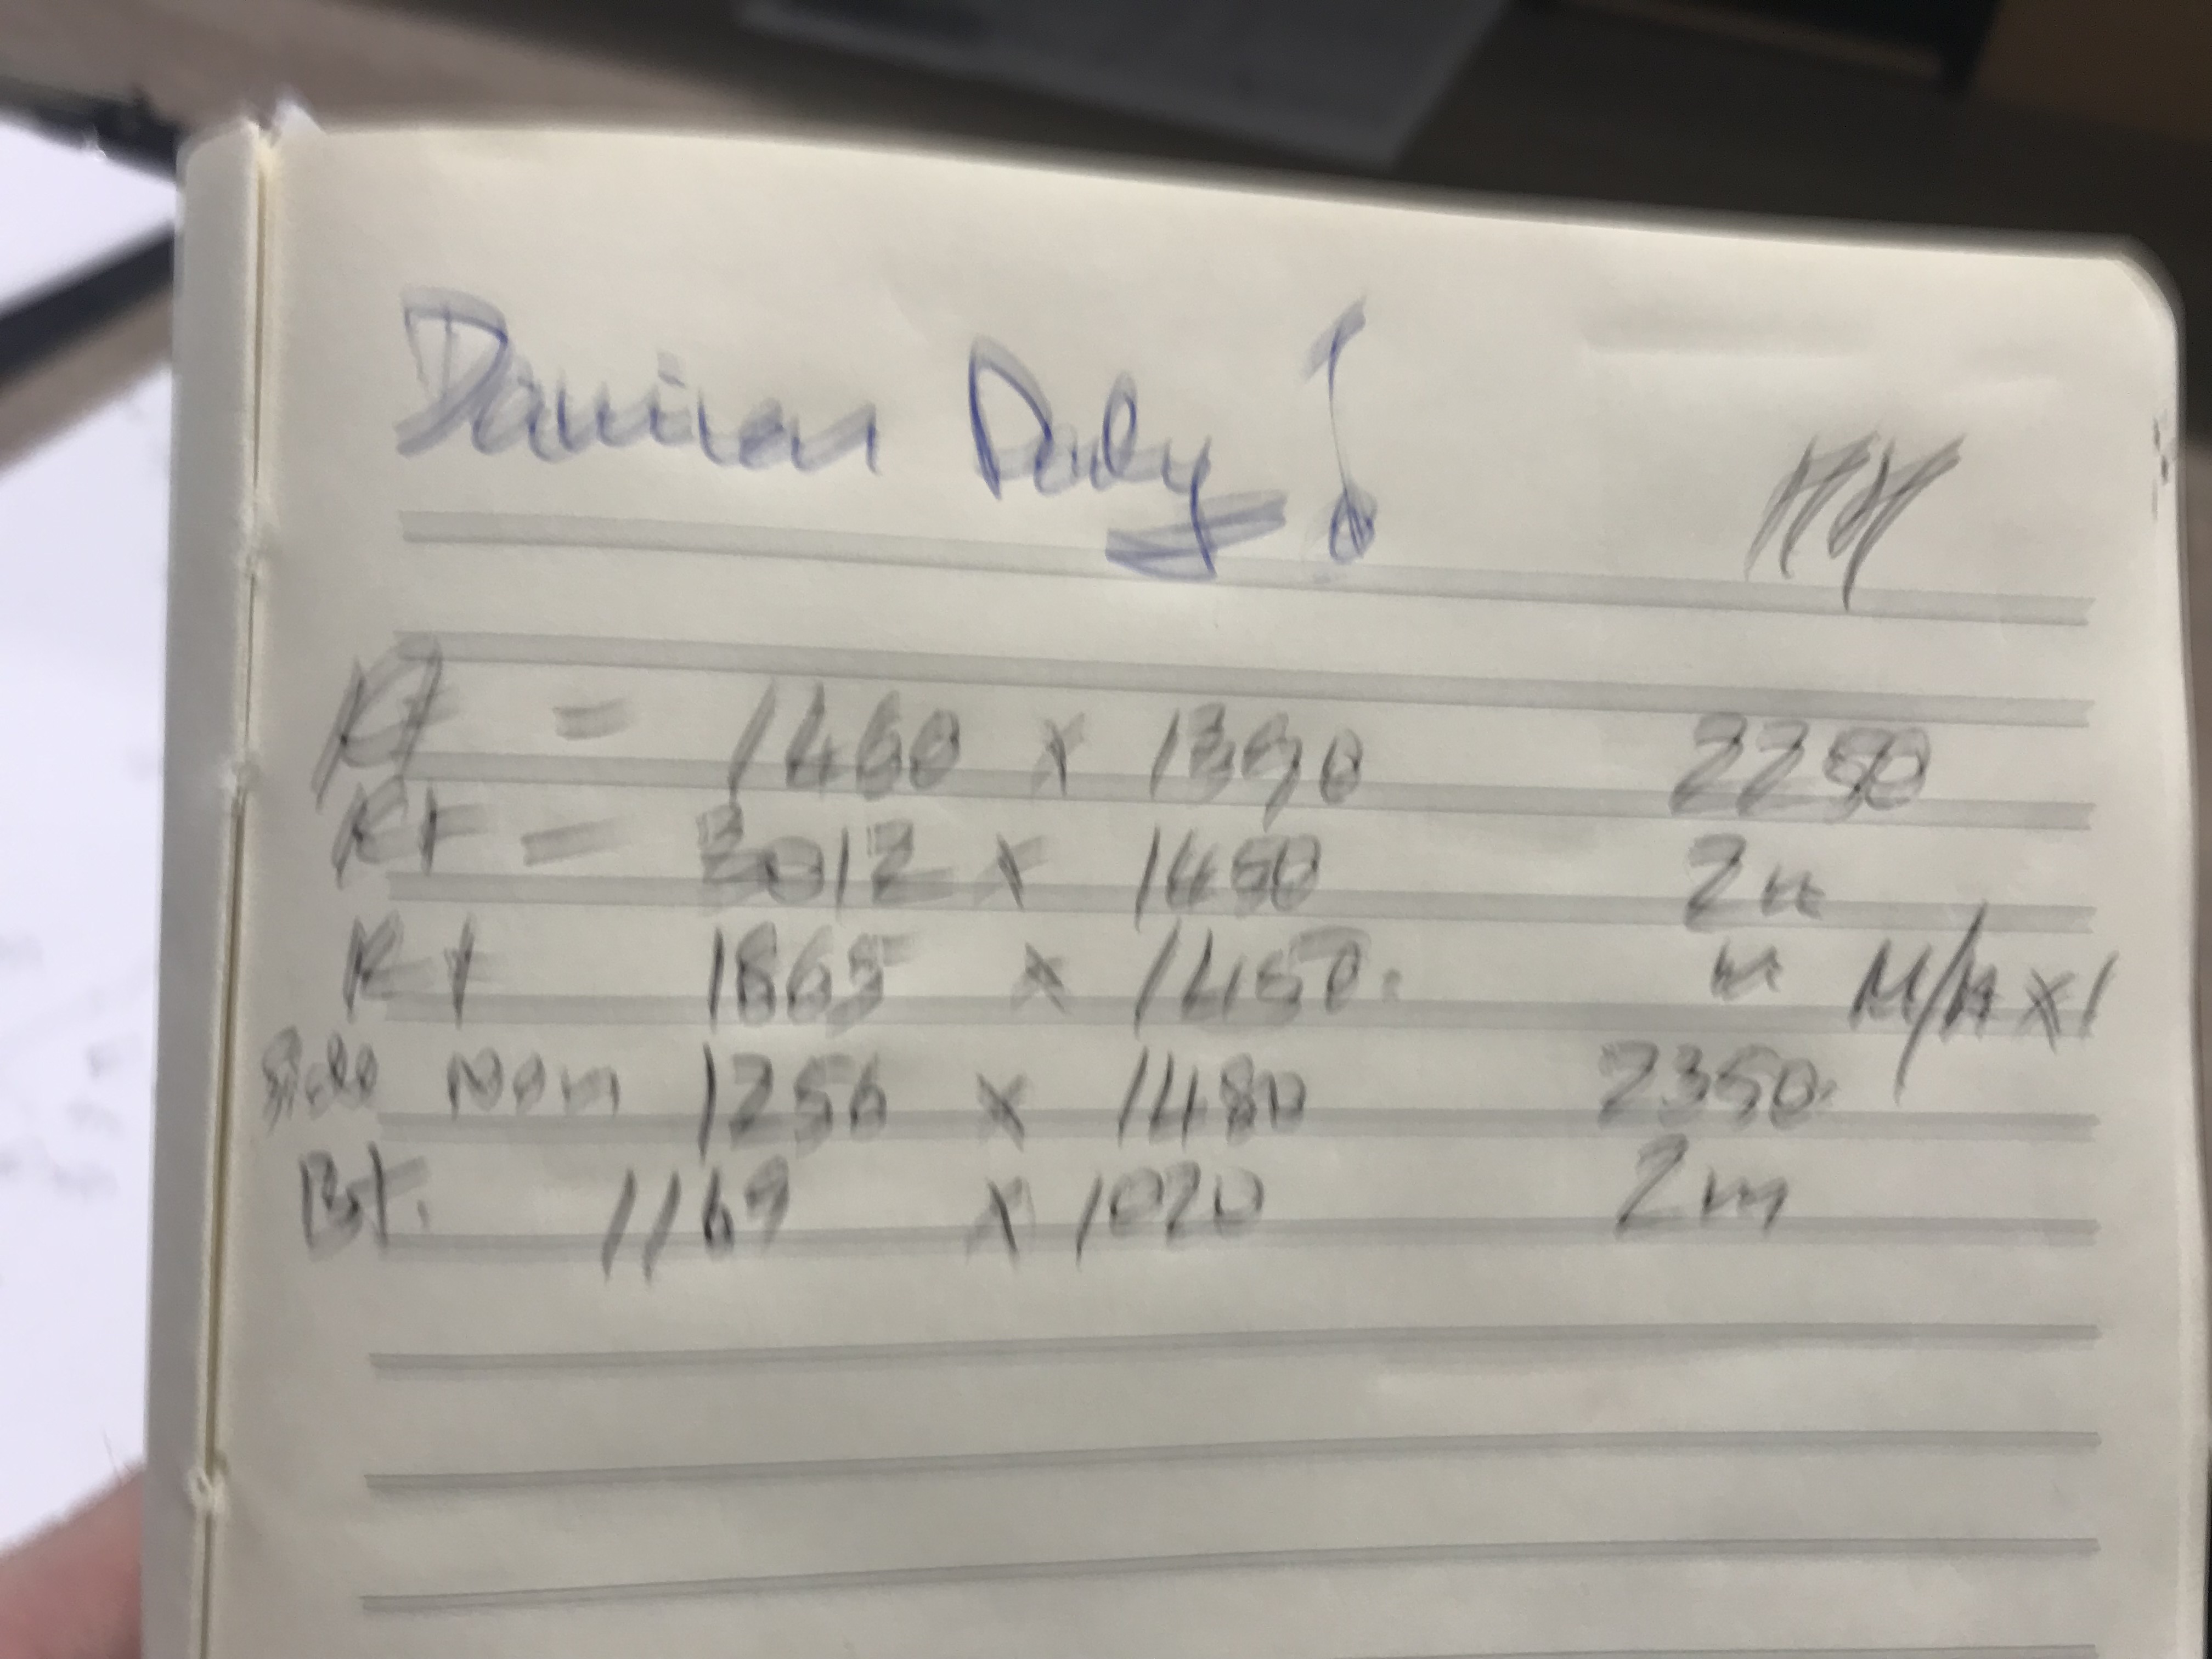 Damien Daly !
Kt = 1460 x 1390 2250
Kt - 3012 x 1450 2m
Kt 1865 x 1450. " M/M x1
Side 1256 x 1480 2350
Bt. 1169 x 1020 2m